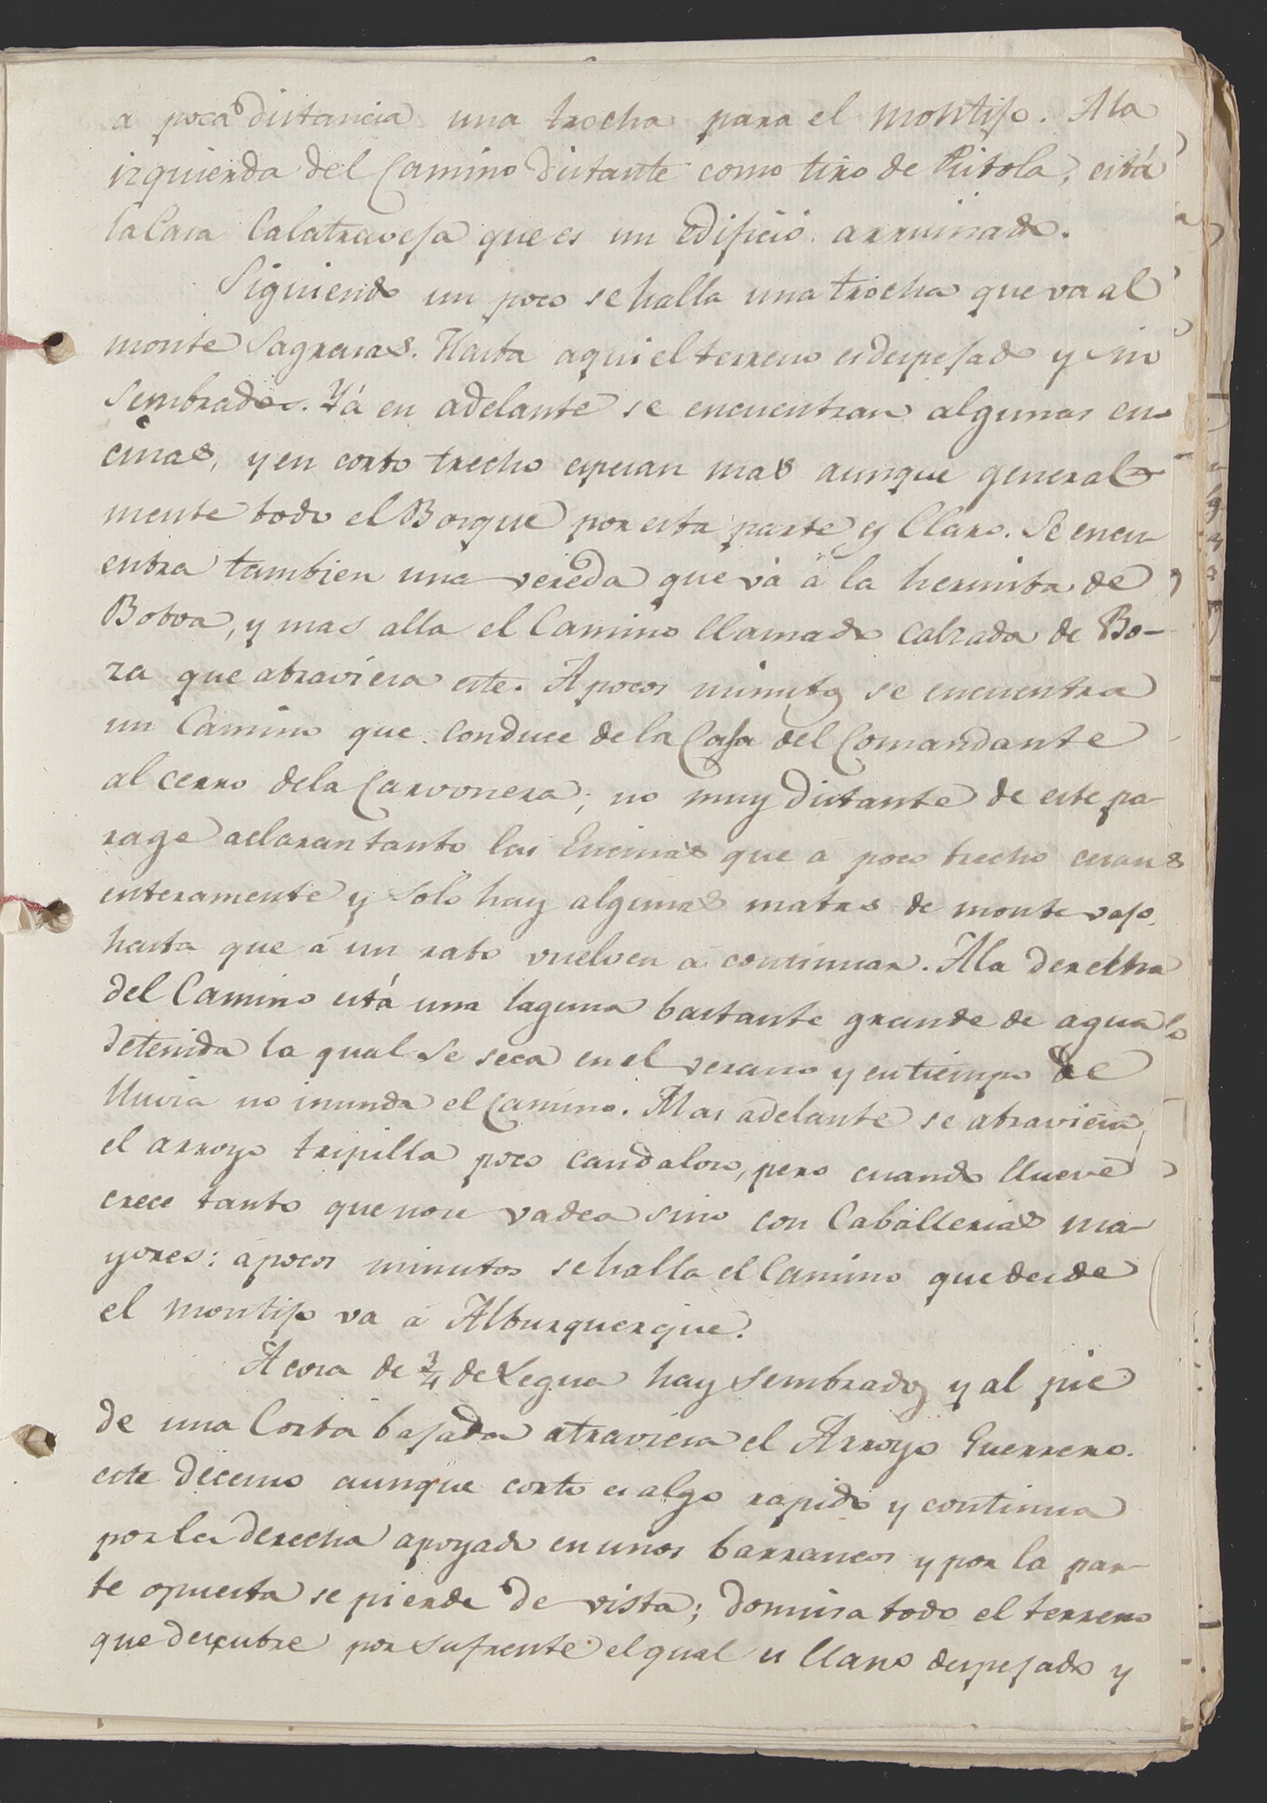 a poca distancia una trocha para el Montijo. A la
izquierda del Camino distante como tiro de Pistola, está
la Casa Calatraveja que es un edificio arruinado.
Siguiendo un poco se halla una trocha que va al
monte Sagreras. Hasta aqui el terreno es despejado y sin
sembrados. Yá en adelante se encuentran algunas en-
cinas, y en corto trecho espesan mas aunque general-
mente todo el Bosque por esta parte es Claro. Se encu-
entra tambien una vereda que vá á la hermita de
Botoa, y mas alla el Camino llamado Calzada de Bo-
za que atraviesa este. A pocos minutos se encuentra
un Camino que conduce de la Casa del Comandante
al cerro de la Carvonera; no muy distante de este pa-
rage aclaran tanto las Encinas que a poco trecho cesan
enteramente y solo hay algunas matas de monte vajo,
hasta que á un rato vuelven á continuar. A la derecha
del Camino está una laguna bastante grande de agua
detenida la qual se seca en el verano y en tiempo de
lluvia no inunda el Camino. Mas adelante se atraviesa
el arroyo tripilla poco caudaloso, pero cuando llueve
crece tanto que no se vadea sino con Caballerias ma-
yores: á pocos minutos se halla el Camino que desde
el Montijo va á Alburquerque.
A cosa de 3/4 de Legua hay sembrados y al pie
de una Corta bajada atraviesa el Arroyo Guerrero.
este decenso aunque corto es algo rapido y continua
por la derecha apoyado en unos barrancos y por la par-
te opuesta se pierde de vista; domina todo el terreno
que descubre por su frente el qual es llano despejado y